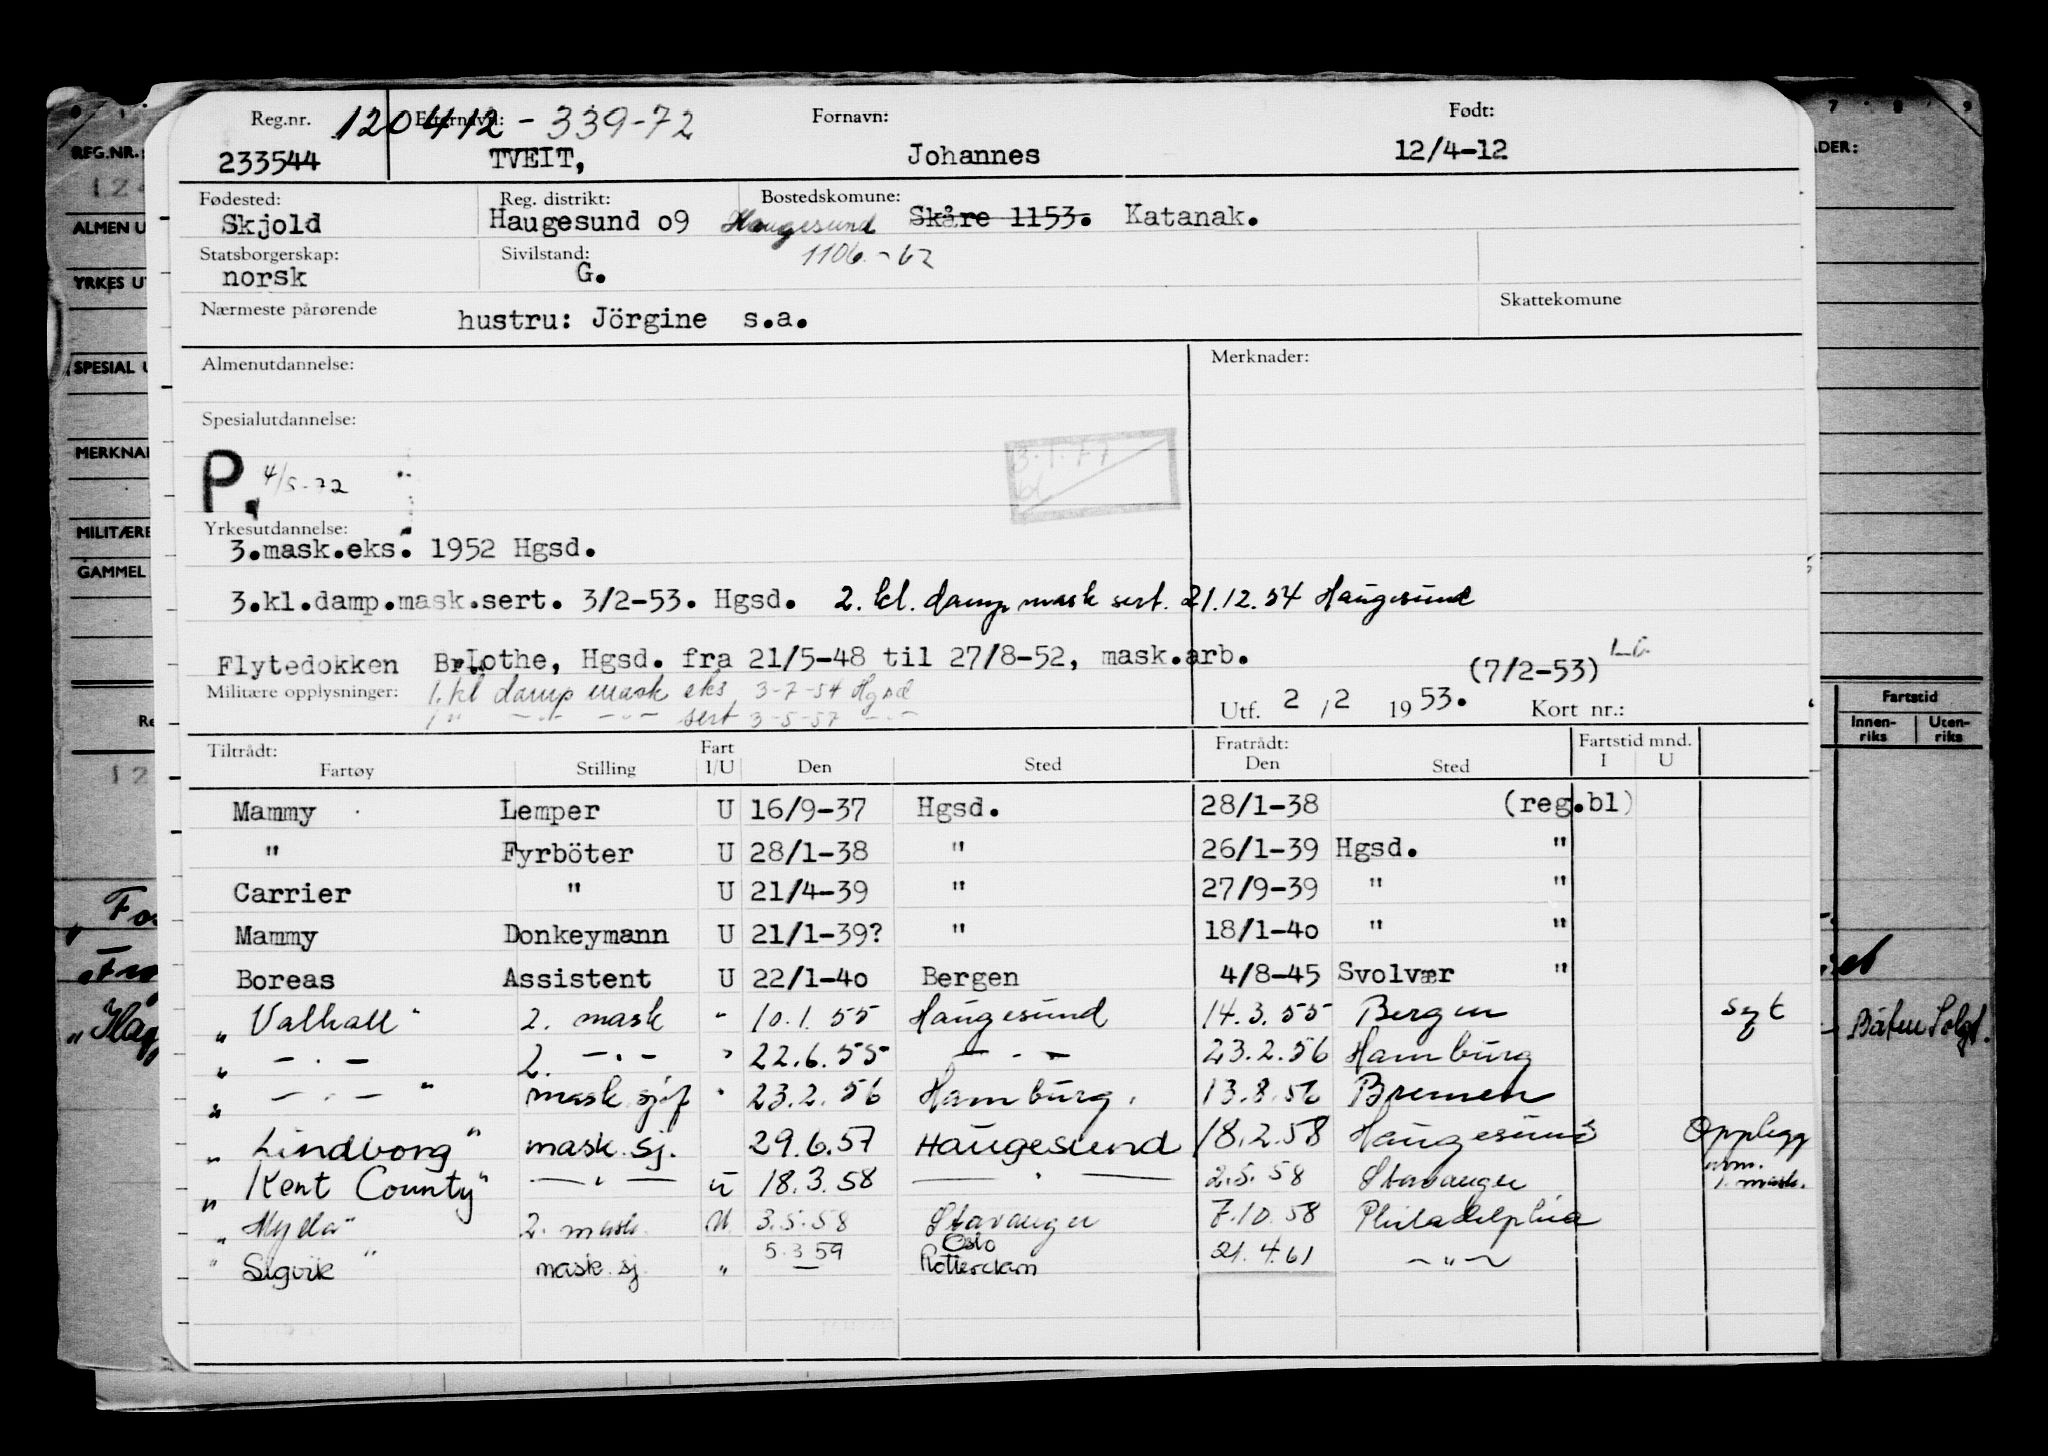 Reg.nr. Etternavn: 120412-339-72 Fornavn: Født:
233544 TVEIT, Johannes 12/4-12
Fødested: Reg. distrikt: Bostedskomune:
Skjold Haugesund o9 Haugesund Skåre 1153. Katanak.
Statsborgerskap: Sivilstand: 1106.-62
norsk G.
Nærmeste pårørende hustru: Jörgine s.a. Skattekomune
Almenutdannelse: Merknader:
Spesialutdannelse:
3.1.77
P. 4/5-72
Yrkesutdannelse:
3.mask.eks. 1952 Hgsd.
3.kl.damp.mask.sert. 3/2-53. Hgsd. 2. kl. damp mask sert. 21.12.54 Haugesund
Flytedokken Br.Lothe, Hgsd. fra 21/5-48 til 27/8-52, mask.arb. (7/2-53)
Militære opplysninger: 1. kl damp mask eks 3-7-54 Hgsd
1 " -"- -"- sert 3-5-57 -"-
Utf. 2 / 2 19 53. Kort nr.:
Tiltrådt: Fart Fratrådt: Fartstid mnd.
Fartøy Stilling I/U Den Sted Den Sted I U
Mammy Lemper U 16/9-37 Hgsd. 28/1-38 (reg.bl)
" Fyrböter U 28/1-38 " 26/1-39 Hgsd. "
Carrier " U 21/4-39 " 27/9-39 " "
Mammy Donkeymann U 21/1-39? " 18/1-40 " "
Boreas Assistent U 22/1-40 Bergen 4/8-45 Svolvær "
"Valhall" 2. mask " 10.1.55 Haugesund 14.3.55 Bergen syk
" -.- 2. -.- " 22.6.55 -.- 23.2.56 Hamburg
" -.- " mask.sjef " 23.2.56 Hamburg. 13.8.56 Bremen
"Lindborg" mask.sj. 29.6.57 Haugesund 18.2.58 Haugesund Opplegg
"Kent County" -"- u 18.3.58 -"- 2.5.58 Stavanger 1. mask.
"Hyda" 2. mask. U. 3.5.58 Stavanger 7.10.58 Philadelphia
"Sigvik" mask.sj. " 5.3 59 Oslo Rotterdam 21.4.61 -"-
REG.NR.:
ALMEN U
YRKES UT
SPESIAL U
MERKNA
MILITÆRE
GAMMEL
7 8 9
ADER:
Fartstid
Innen-riks Uten-riks
Båten Solgt.